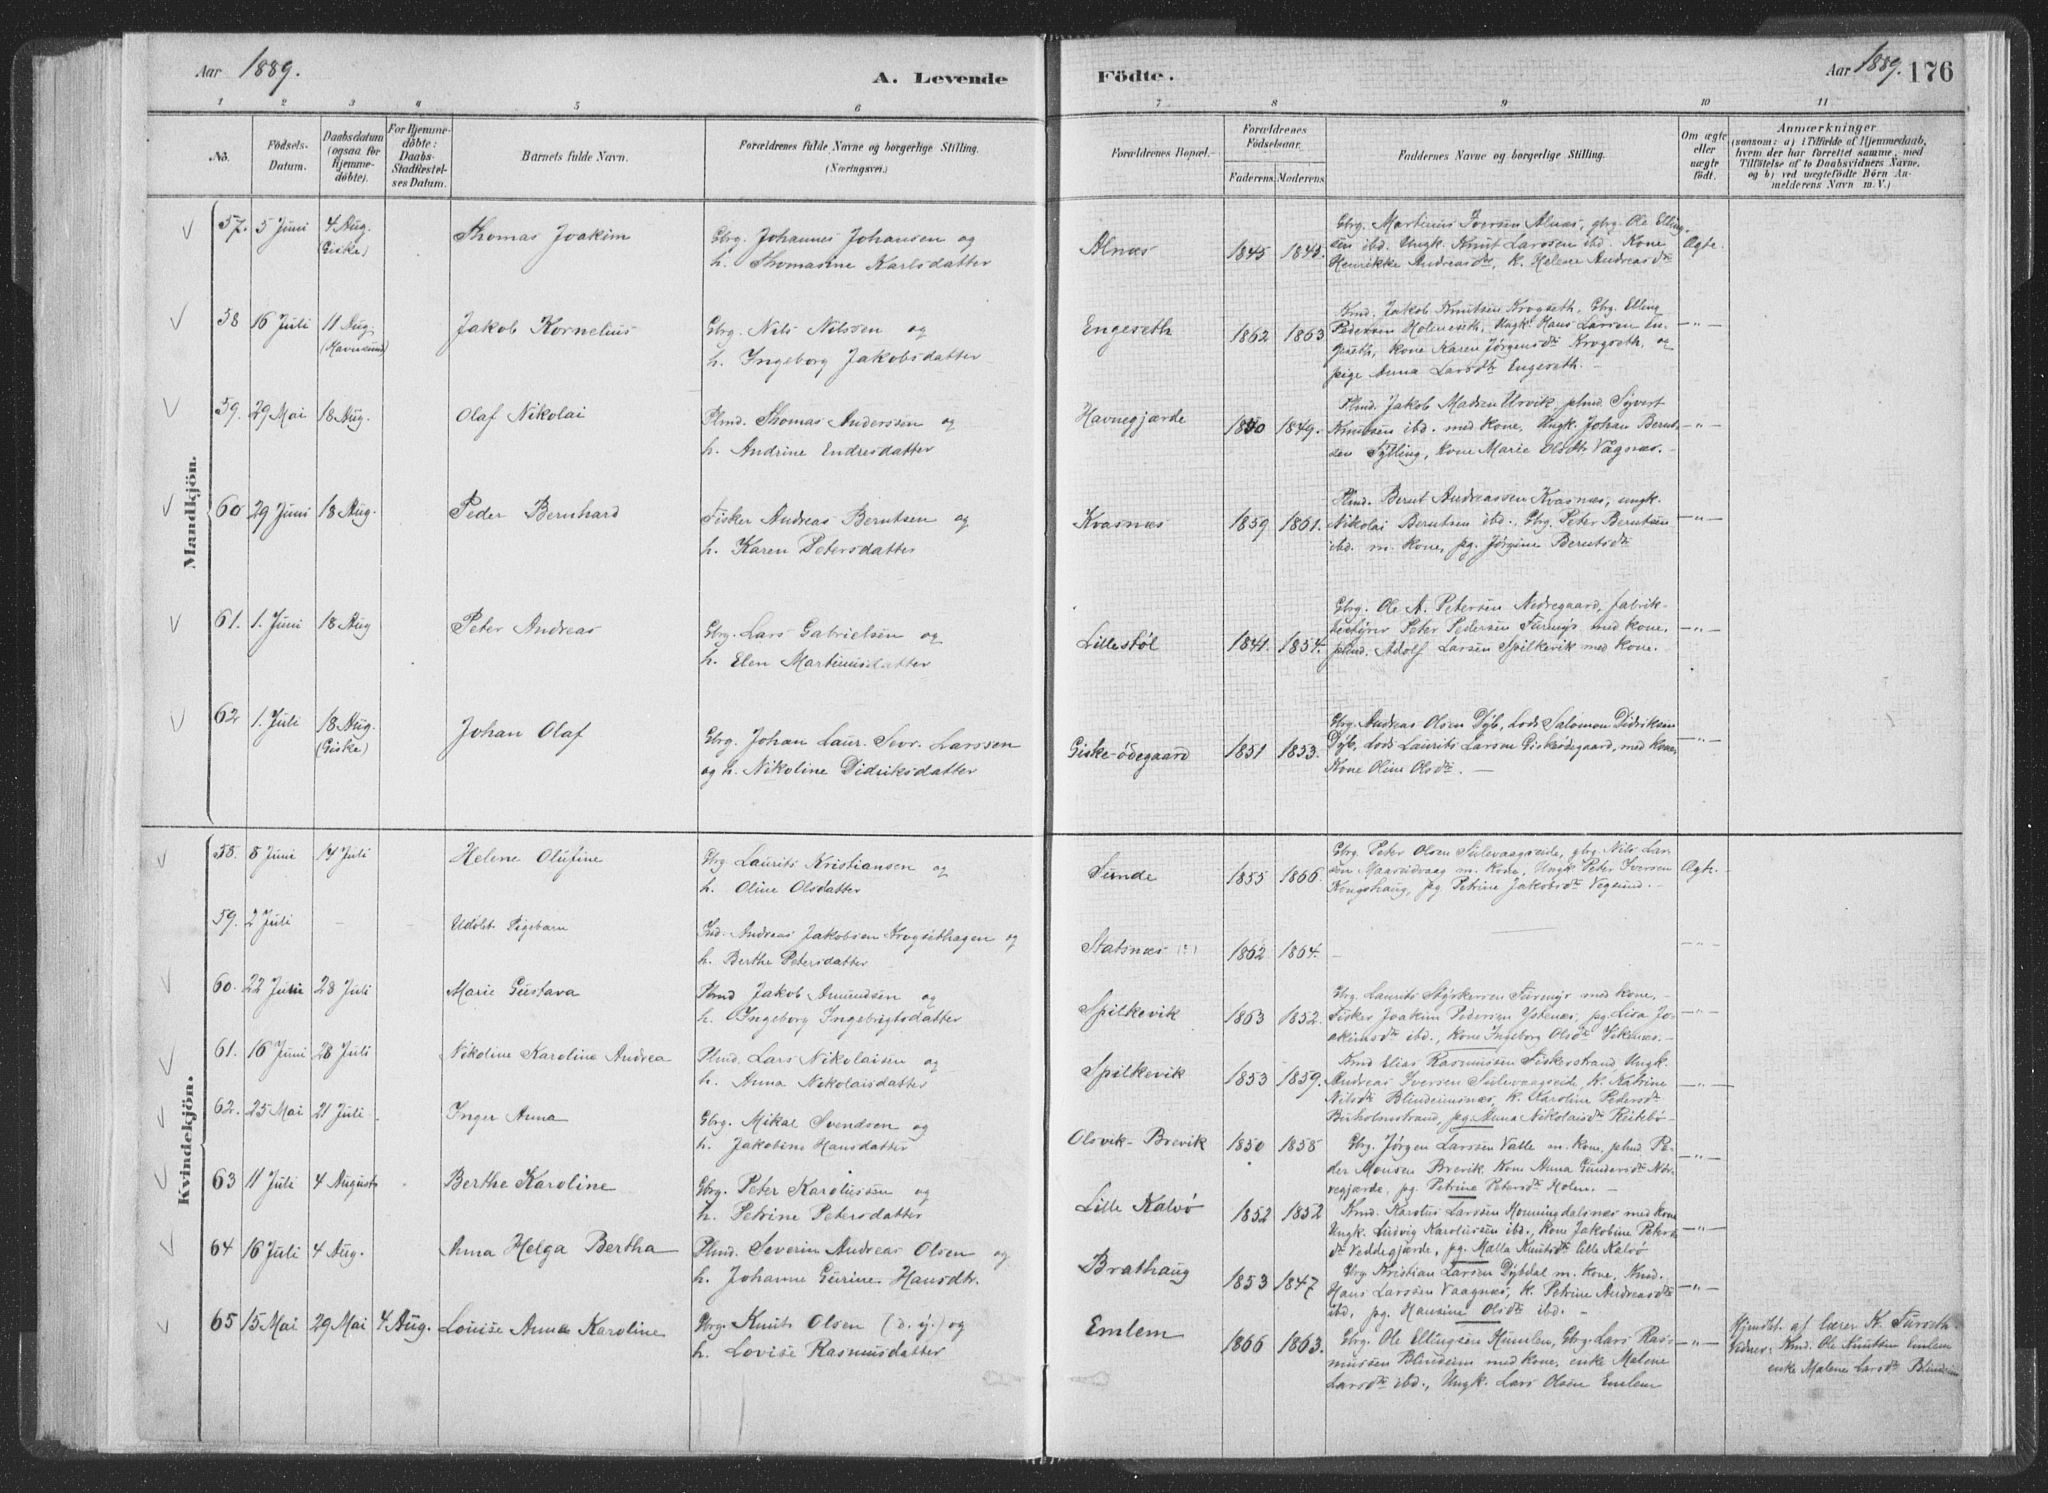 Aar 1889.
A. Levende
Födte.
Aar 1889. 176
1 2 3 4 5 6 7 8 9 10 11
No.
Födsels-
Datum.
Daabsdatum
(ogsaa for
Hjemme-
döbte).
For Hjemme-
döbte:
Daabs-
Stadfæstel-
ses Datum.
Barnets fulde Navn.
Forældrenes fulde Navne og borgerlige Stilling.
(Næringsvei.)
Forældrenes Bopæl.
Forældrenes
Födselsaar.
Faderens. Moderens.
Faddernes Navne og borgerlige Stilling.
Om ægte
eller
uægte
födt.
Anmærkninger
(saasom: a) i Tilfælde af Hjemmedaab,
hvem der har forrettet samme, med
Tilföielse af to Daabsvidners Navne,
og b) ved uægtefödte Börn An-
melderens Navn m. V.)
Mandkjön.
57. 5 Juni 4 Aug. (Giske) Thomas Joakim
Gbrg. Johannes Johansen og
h. Thomasine Karlsdatter
Alnæs 1845 1845.
Gbrg. Martinus Iversen Alnæs, gbrg. Ole Elling-
sen ibd. Ungk. Knut Larssen ibd. Kone
Henrikke Andreasdtr, k. Helene Andreasdtr
Ægte.
58 16 Juli 11 Aug. (Havnsund) Jakob Kornelius
Gbrg. Nils Nilssen og
h. Ingeborg Jakobsdatter
Engeseth 1862 1863
Kmd. Jakob Knutsen Krogseth, Gbrg. Elling
Pedersen Holmeseth, Ungk. Hans Larsen En-
geseth, kone Karen Jørgensdtr Krogseth, og
pige Anna Larsdtr Engeseth. -
-"-
59. 29 Mai 18 Aug. Olaf Nikolai
Plmd. Thomas Anderssen og
h. Andrine Endresdatter
Havnegjærde 1850 1849.
Plmd. Jakob Madsen Urvik, plmd. Syvert
Knutsen ibd. med kone, Ungk. Johan Bernt-
sen Sylling, kone Marie Olsdtr Vágsnæs.
-"-
60 29 Juni 18 Aug. Peder Bernhard
Fisker Andreas Berntsen og
h. Karen Petersdatter
Kvasnæs 1859 1861.
Plmd. Bernt Andreassen Kvasnæs, ungk.
Nikolai Berntsen ibd., Gbrg. Peter Berntsen
ibd. m. kone, pg. Jørgine Berntsdtr
-"-
61. 1. Juni 18 Aug Peter Andreas
Gbrg. Lars Gabrielsen og
h. Elen Martinusdatter
Lillestøl 1841. 1854.
Gbrg. Ole A. Petersen Nedregaard, fabrik-
bestyrer Peter Pedersen Furmyr med kone,
plmd. Adolf Larsen Spilkevik med kone.
-"-
62 1. Juli 18 Aug. (Giske) Johan Olaf
Gbrg. Johan Laur. Sevr. Larssen
og h. Nikoline Didriksdatter
Giske-ödegaard 1851 1853.
Gbrg. Andreas Olsen Dyb, Lods Salomon Didriksen
Dyb, Lods Laurits Larsen Giskeödegaard, med kone,
Kone Oline Olsdtr. -
-"-
Kvindekjön.
58. 8 Juni 14 Juli Helene Olufine
Gbrg Laurits Kristiansen og
h. Oline Olsdatter
Sunde 1855 1866.
Gbrg. Peter Olsen Sulevaagseide, gbrg. Nils Lar-
sen Maaseidvaag m. kone, Ungk Peter Iversen
Kongshaug, pg Petrine Jakobsdtr Vegsund. -
Ægte.
59. 2 Juli - Udöbt Pigebarn
Ind. Andreas Jakobsen Krogsethagen og
h. Berthe Petersdatter
Statsnæs (?) 1862 1864. -
-"-
60. 22 Juni 28 Juli Marie Gustava
Plmd Jakob Amundsen og
h. Ingeborg Ingebrigtsdatter
Spilkevik 1863 1852.
Gbrg. Laurits Styrkersen Furmyr med kone, -
Fisker Joakim Pedersen Ystenæs, pg. Lisa Jo-
akimsdtr ibd., kone Ingeborg Olsdtr Ystenæs. -
-"-
61. 16 Juni 28 Juli Nikoline Karoline Andrea
Plmd. Lars Nikolaisen og
h. Anna Nikolaisdatter
Spilkevik 1853 1859.
Kmd Elias Rasmussen Fiskerstrand, Ungk.
Andreas Iversen Sulevaagseid, k. Katrine
Nilsdtr Blindeimsnæs, k. Karoline Petersdtr
Buholmstrand, pg. Anna Nikolaisdtr Reitebø-
-"-
62. 25 Mai 21 Juli Inger Anna
Gbrg. Mikal Svendsen og
h. Jakobine Hansdatter
Olsvik-Brevik 1850 1858
Gbrg. Jørgen Larssen Valle m. kone, plmd. Pe-
der Monsen Brevik, kone Anna Gundersdtr
vegjærde, pg. Petrine Petersdtr Holen. -
-"-
63 11 Juli 4 August Berthe Karoline
Gbrg. Peter Karolussen og
h. Petrine Petersdatter
Lille Kalvø 1852 1852
Kmd. Karolus Larssen Honningdalsnæs med kone
Ungk. Ludvig Karolussen ibd., Kone Jakobine Peters-
dtr Veddegjærde, pg. Malla Knutsdtr Lille Kalvø
-"-
64 16 Juli 4 Aug. Anna Helga Bertha
Plmd. Severin Andreas Olsen og
h. Johanne Gurine Hansdtr.
Brathaug 1853 1847
Gbrg. Kristian Larsen Dybdal m. kone, Kmd.
Hans Larssen Vaagnæs, k. Petrine Andreasdtr
ibd, pg. Hansine Olsdtr ibd. -
-"-
65 15 Mai 29 Mai 4 Aug. Louise Anna Karoline
Gbrg. Knut Olsen (d. y.) og
h. Lovise Rasmusdatter
Emlem 1866 1863.
Gbrg. Ole Ellingsen Humlen, Gbrg. Lars Ras-
mussen Blindeim med kone, enke Malene
Larsdtr ibd., Ungk. Lars Olsen Emlem
-"-
Hjmdbt. af lærer K. Furseth.
Vidner: Kmd. Ole Knutsen Emlem
enke Malene Larsdtr Blindeim